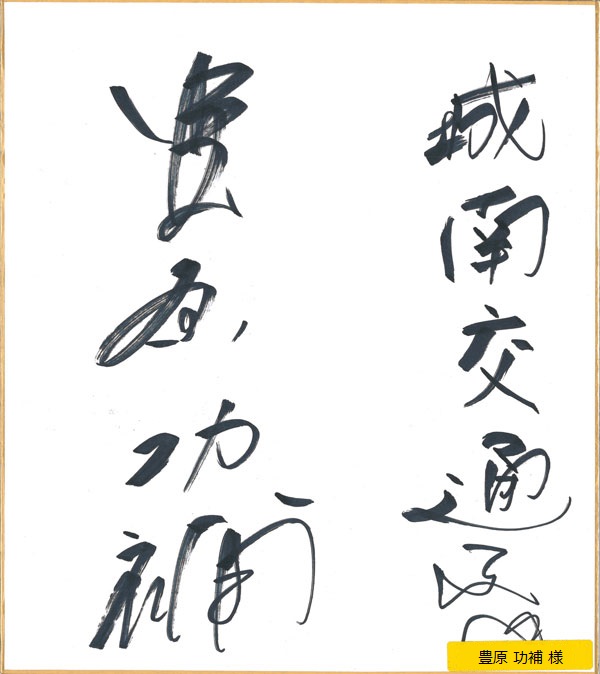 城南交通
豊原功補
豊原 功補 様